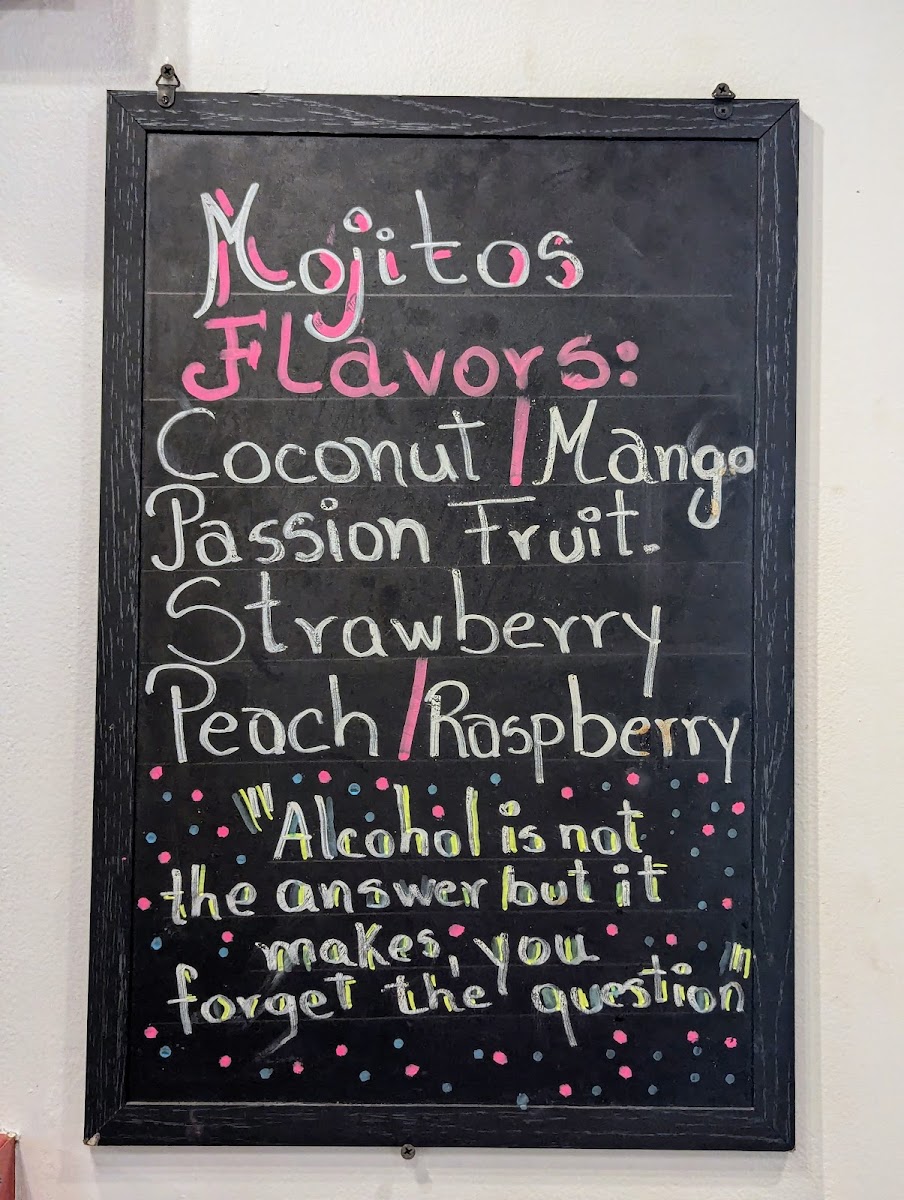 Mojitos
Flavors:
Coconut / Mango
Passion Fruit.
Strawberry
Peach / Raspberry
"Alcohol is not
the answer but it
makes, you
forget the question"